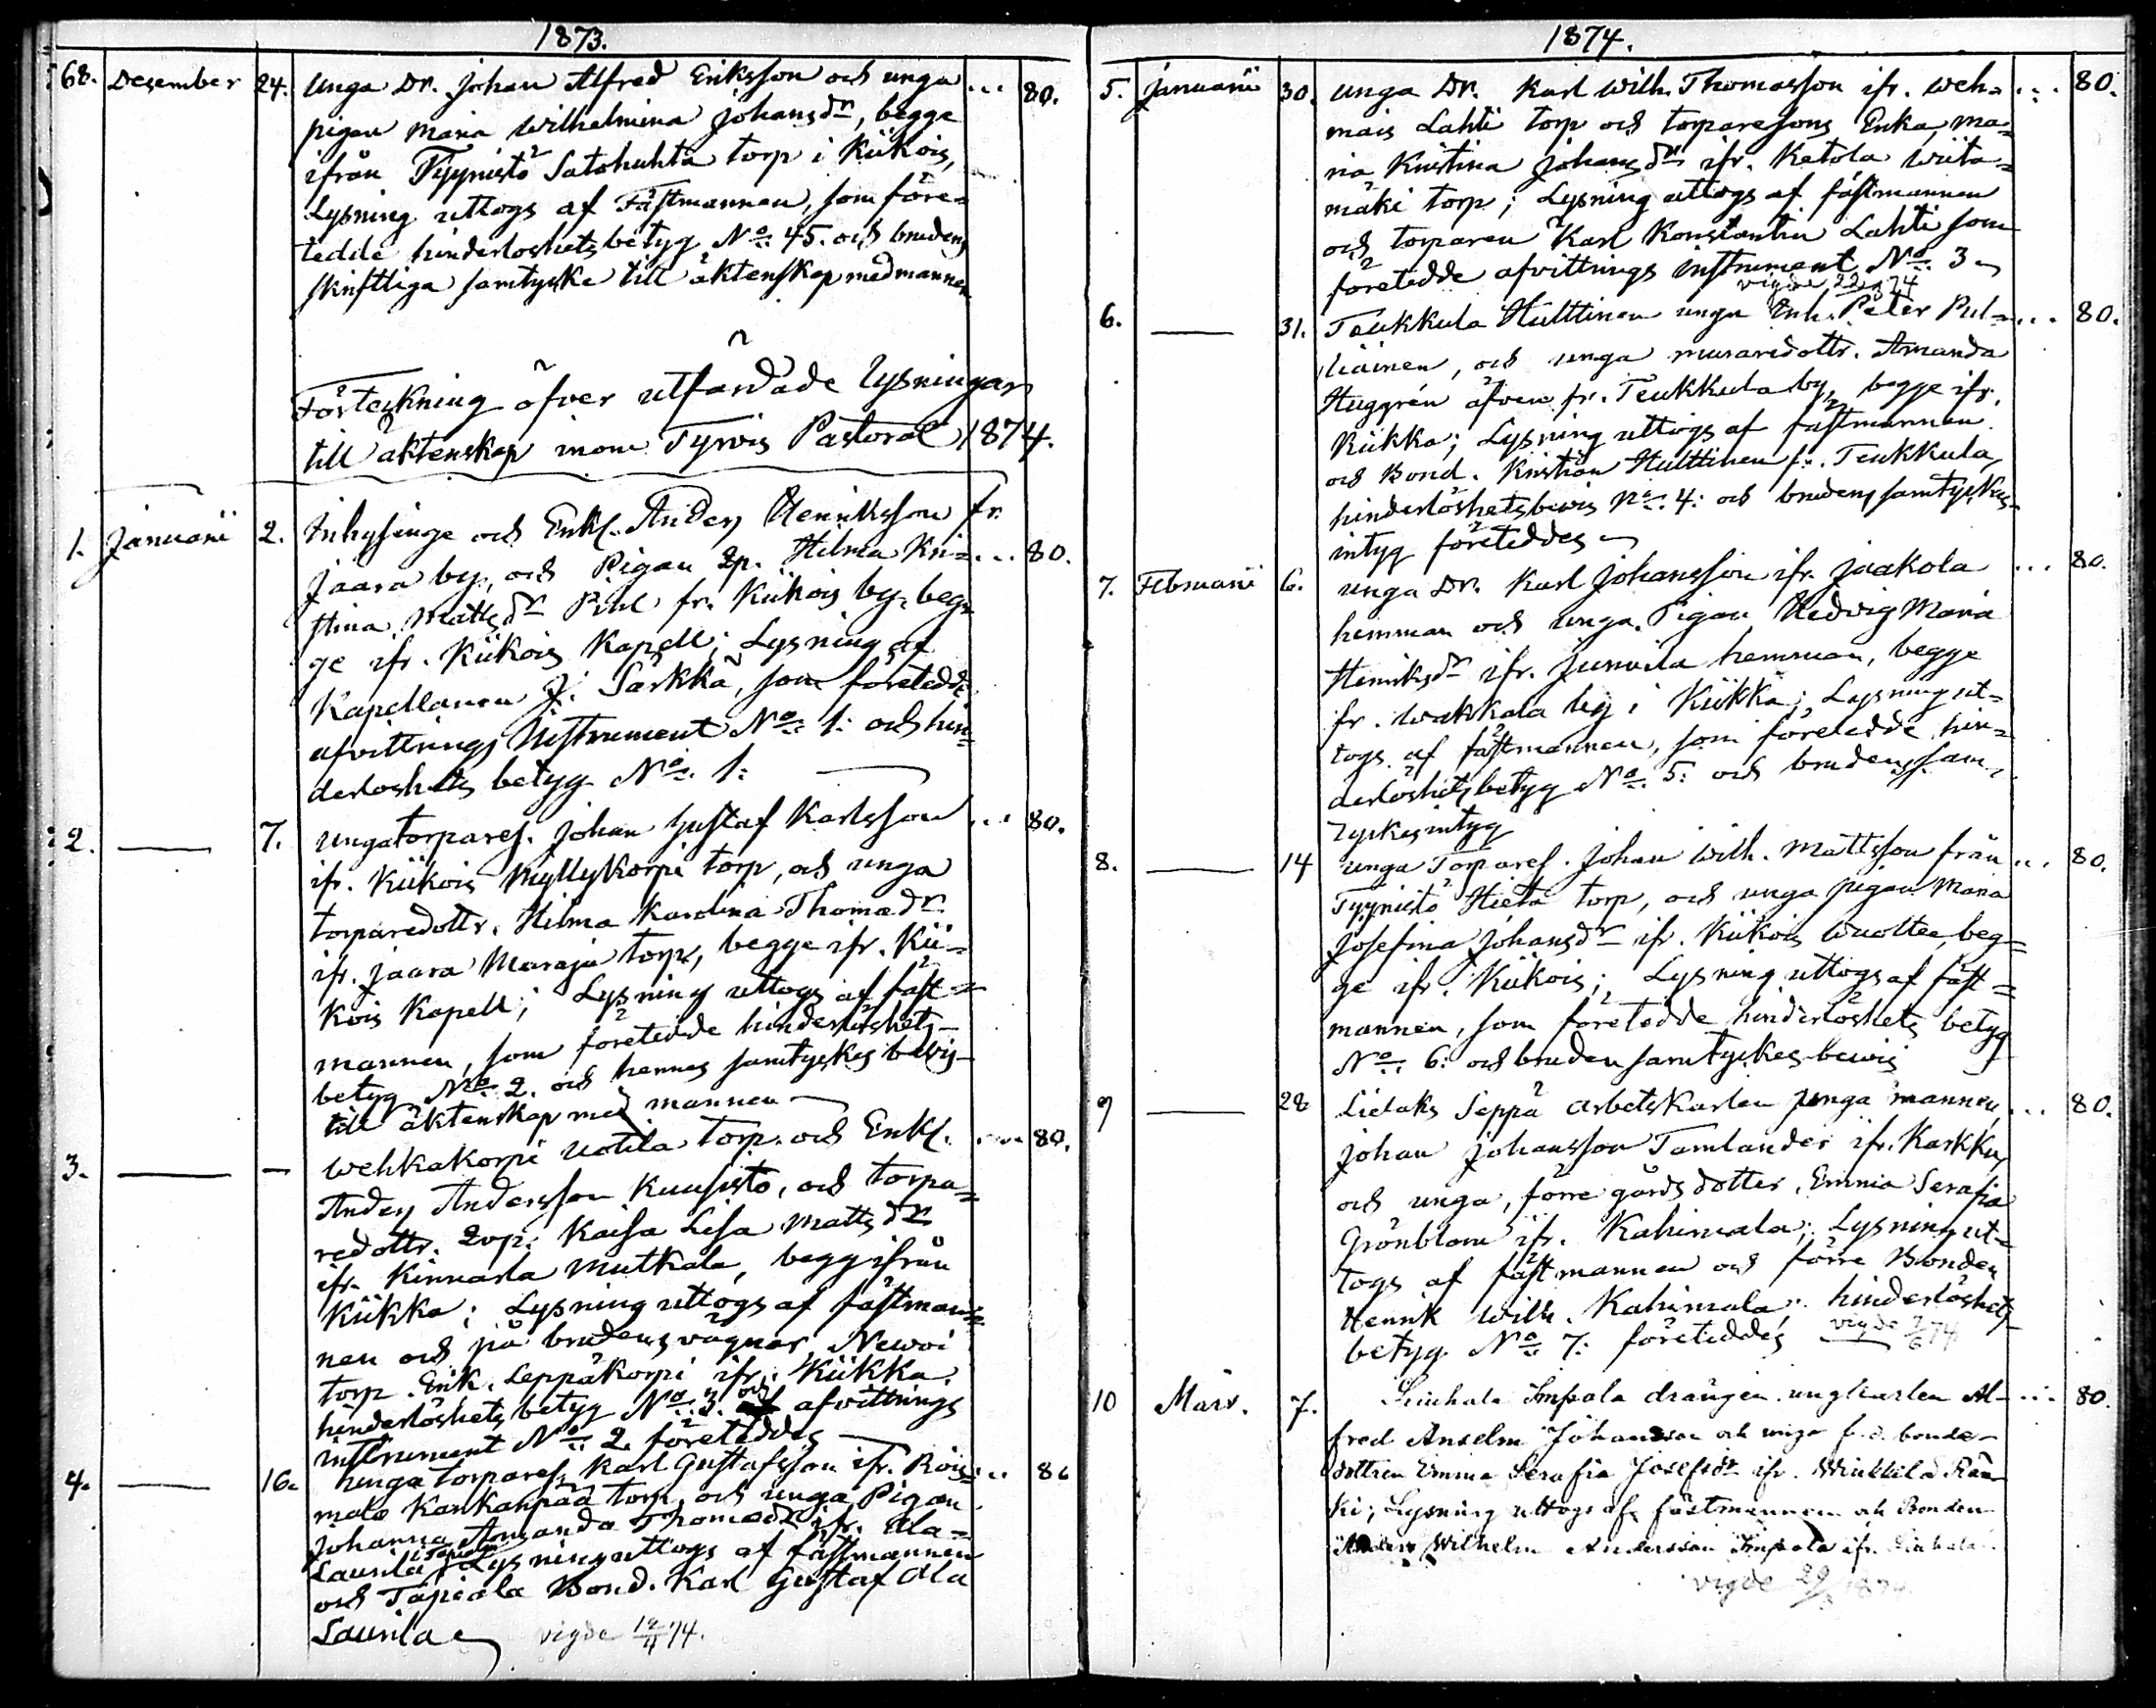 1873.
68. Desember 24. Unga Dr. Johan Alfred Eriksson och unga ... 80.
pigan Maria Wilhelmina Johansdr, begge
ifrån Tyynistö Satohuhta torp i Kiikois,
Lysning uttogs af Fästmannen, som före=
tedde hinderloshets betyg No 45. och brudens
skriftliga samtycke till äktenskap med mannen
Förteckning öfver utfärdade Lysningar
till äktenskap inom Tyrvis Pastorat 1874.
1. Januarii 2. Inhysinge och Enkl. Anders Henriksson fr.
Jaara by, och Pigan Qp. Hilma Kri= ... 80.
stina Mattsdr Pihl fr. Kiikois by, beg=
ge ifr. Kiikois Kapell; Lysning af
Kapellanen J: Särkkä, som företedde
afvittrings Instrument No 1: och hin=
derloshets betyg No 1:
2. — 7. unga torpares. Johan Gustaf Karlsson ... 80.
ifr. Kiikois Myllykorpi torp, och unga
torparedottr. Hilma Karolina Thomadr
ifr. Jaara Maraja torp, begge ifr. Kii=
kois Kapell; Lysning uttogs af fäst=
mannen, som företedde hinderlöshets-
betyg No 2. och hennes samtyckes bevis
till äktenskap med mannen —
3. — — Wehkakorpi Uotila torp. och Enkl. ... 80.
Anders Andersson Kuusisto, och torpa=
redottr. Qvp. Kaisa Lisa Mattsdr
ifr. Kinnarla Mutkala, begg ifrån
Kiikka; Lysning uttogs af fästman=
nen och på brudens vägnar Newoi
torp. Erik. Leppäkorpi ifr. Kiikka.
hinderlöshets betyg No 3. och afvittrings
instrument No 2. företeddes —
4. — 16. Unga torpares. Karl Gustafsson ifr. Rois= ... 80
mala Kankanpää torp, och unga Pigan
Johanna Amanda Thomedr ifr. Ala=
Laurila i Tapiola; Lysning uttogs af fästmannen
och Tapiola Bond. Karl Gustaf Ala
Laurila vigde 12/4 74.
1874.
5. Januarii 30. unga Dr. Karl Wilh. Thomasson ifr. Weh= ... 80.
mais Lahti torp och torparesons Enka, Ma=
ria Kristina Johansdr ifr. Ketola Wiita=
mäki torp; Lysning uttogs af fästmannen
och torparen Karl Konstantin Lahti som
företedde afvittrings instrument No 3
vigde 22/3 74
6. — 31. Teukkula Hulttinen unga Inh. Peter Pul= ... 80.
liäinen, och unga muraredottr. Amanda
Huggrén äfven fr. Teukkula by, begge ifr.
Kiikka; Lysning uttogs af fästmannen
och Bond. Kristian Hulttinen fr. Teukkula,
hinderlöshetsbewis No 4: och brudens samtyckes
intyg företeddes
7. Februarii 6. unga Dr. Karl Johansson ifr. Jaakola ... 80.
hemman och unga Pigan Hedvig Maria
Henriksdr ifr. Junnila hemman, begge
fr. Wakkala by i Kiikka; Lysning ut=
togs af fästmannen, som företedde hin=
derlöshets betyg No 5: och brudens sam=
tyckes intyg
8. — 14 unga Torpares. Johan Wilh. Mattsson från ... 80.
Tyynistö Hieta torp, och unga pigan Maria
Josefina Johansdr ifr. Kiikois Wuoltee, beg=
ge ifr. Kiikois; Lysning uttogs af fäst=
mannen, som företedde hinderlöshets betyg
No 6: och bruden samtyckes bewis
9 — 28 Liedaks Seppä arbetskarlen unga mannen, ... 80.
Johan Johansson Tamlander ifr. Karkku,
och unga, förre gårds dotter, Emma Serafia
Grönblom ifr. Kahimala; Lysning ut=
togs af fästmannen och förre Bonden
Henrik Wilh. Kahimala hinderlöshets
betyg No 7: företeddes vigde 7/6 74
10 Mars. 7. Impola drängen ungkarlen Al- ... 80.
fred Anselm Johansson och unga f.d. bonde-
dottren Emma Serafia Josefsdr ifr.
ki; Lysning uttogs af fästmannen och Bonden
Anders Wilhelm Andersson Impola ifr.
vigde 29/3 1874